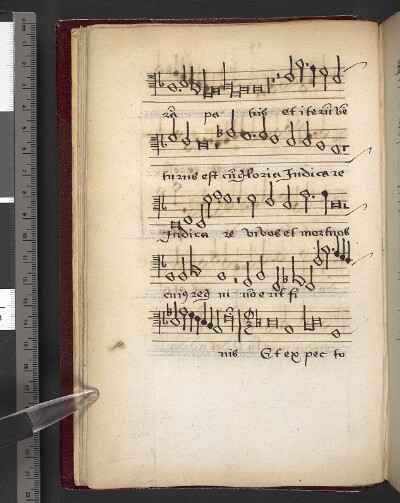 r̄a pa tris et iterū vē
turus est cū gloria Iudicare
Iudica re vivos et mortuos
cuiꝯ reg ni nō erit fi
nis Et ex pec to